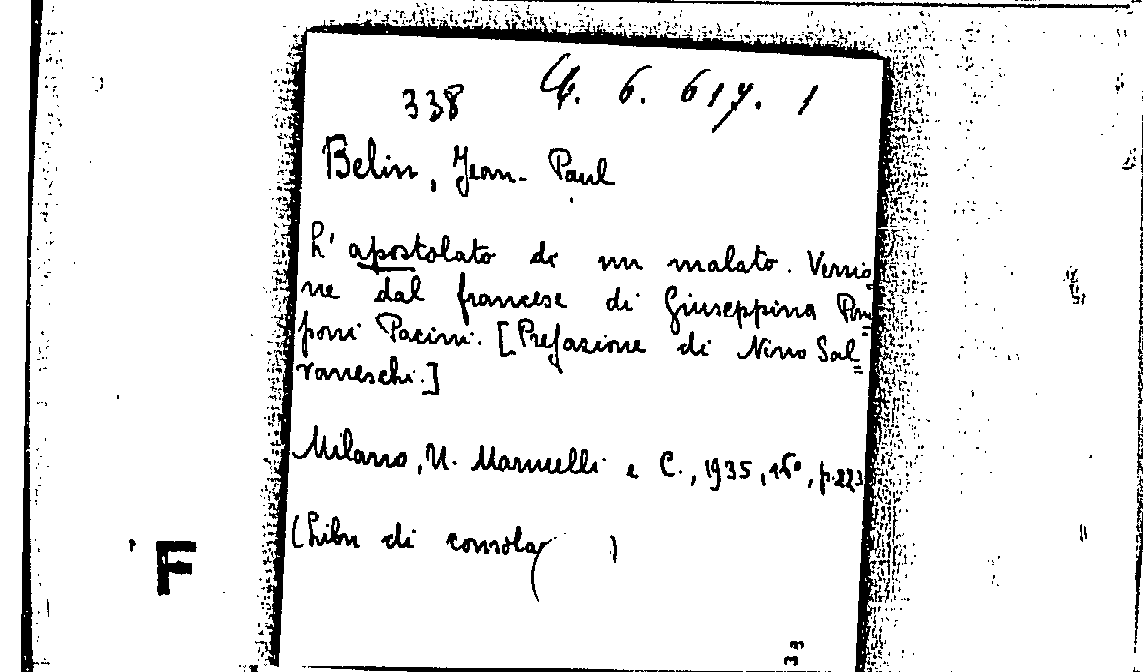 338 4. 6. 617. 1
Belin, Jean-Paul
L'apostolato di un malato. Versio=
ne dal francese di Giuseppina Pom=
poni Pacini. [Prefazione di Nino Sal=
vaneschi.]
Milano, M. e C., 1935, 16°, p. 223
(Libri di consola )
F